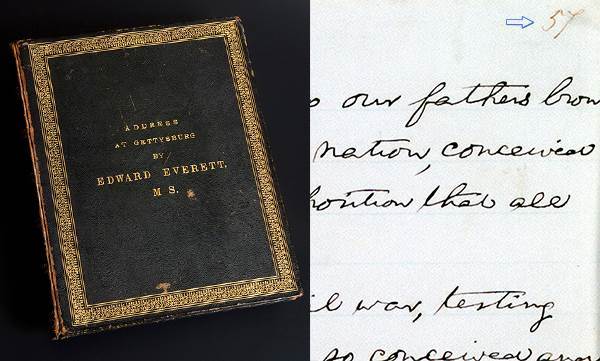 ADDRESS
AT GETTYSBURG
BY
EDWARD EVERETT.
M S.
57
o our fathers brou
nation, conceived
position that all
il war, testing
so conceived and